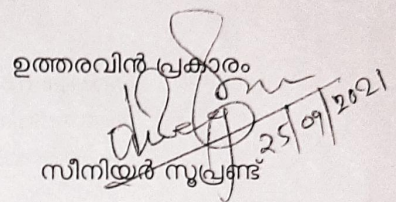 ഉത്തരവിൻ പ്രകാരം
25/09/2021
സീനിയർ സൂപ്രണ്ട്